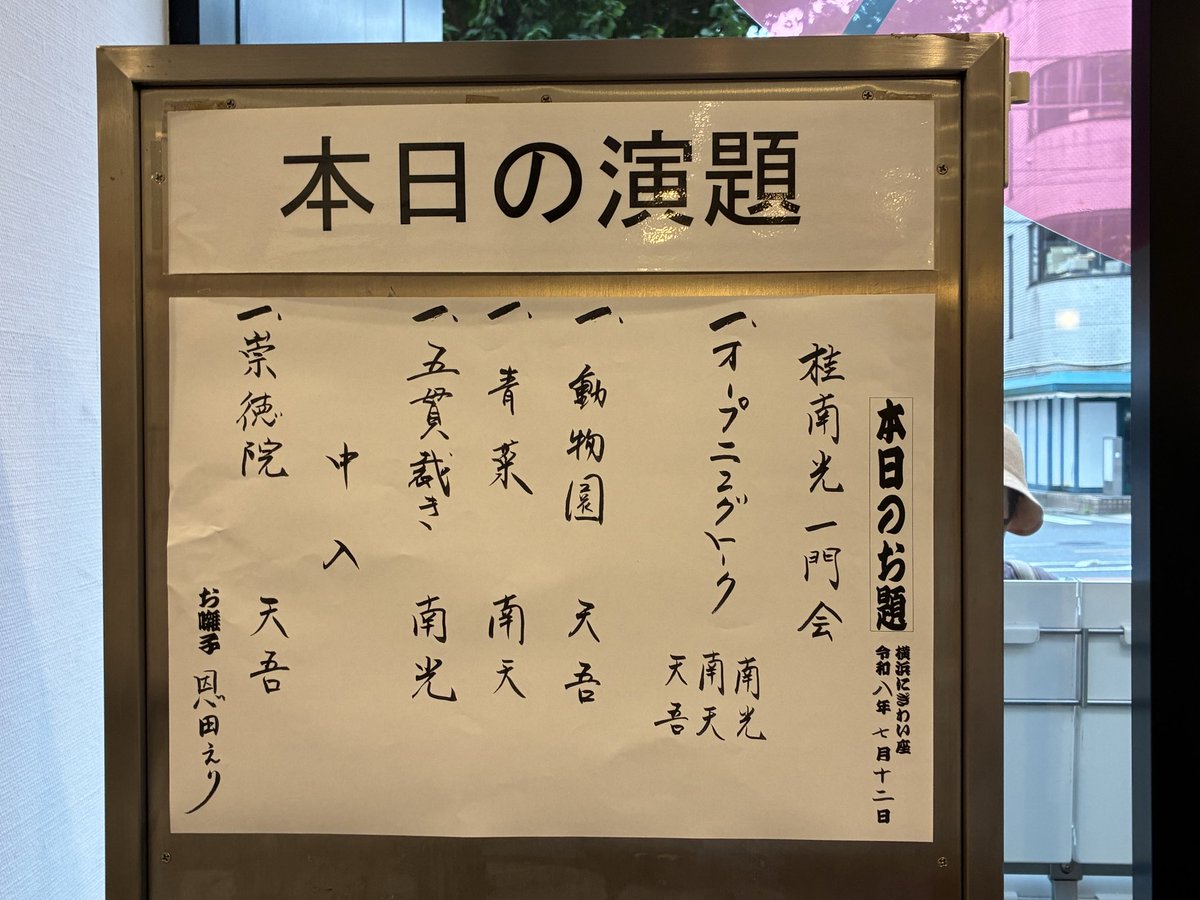 本日の演題
本日のお題
横浜にぎわい座
令和八年 七月十二日
桂南光一門会
一、オープニングトーク 南光 南天 天吾
一、動物園 天吾
一、青菜 南天
一、五貫裁き 南光
中入
一、崇徳院 天吾
お囃子 恩田えり